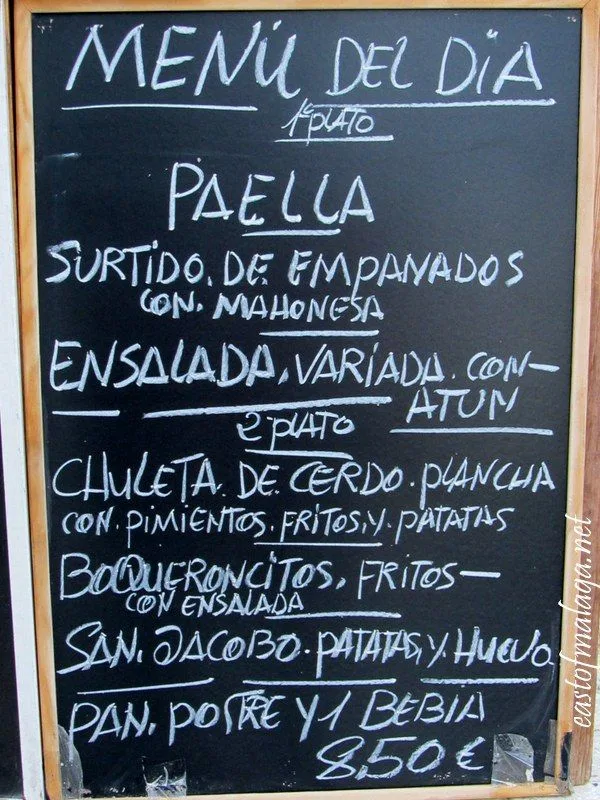 MENÚ DEL DÍA
1º PLATO
PAELLA
SURTIDO. DE EMPANADOS
CON. MAHONESA
ENSALADA. VARIADA. CON-
ATUN
2 PLATO
CHULETA. DE CERDO. PLANCHA
CON. PIMIENTOS. FRITOS. Y. PATATAS
BOQUERONCITOS. FRITOS-
CON ENSALADA
SAN. JACOBO. PATATAS, Y HUEVO
PAN. POSTRE Y 1 BEBIA
8,50 €
eastofmalaga.net